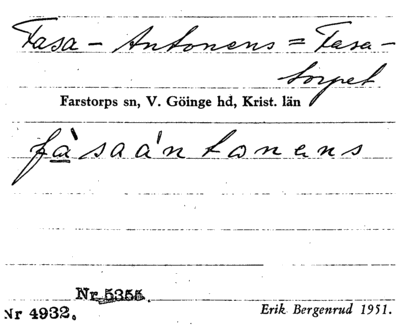 Fasa-Antonens = Fasa-
torpet
Farstorps sn, V. Göinge hd, Krist. län
fàsaántonens
Nr 5355.
Nr 4932.
Erik Bergenrud 1951.